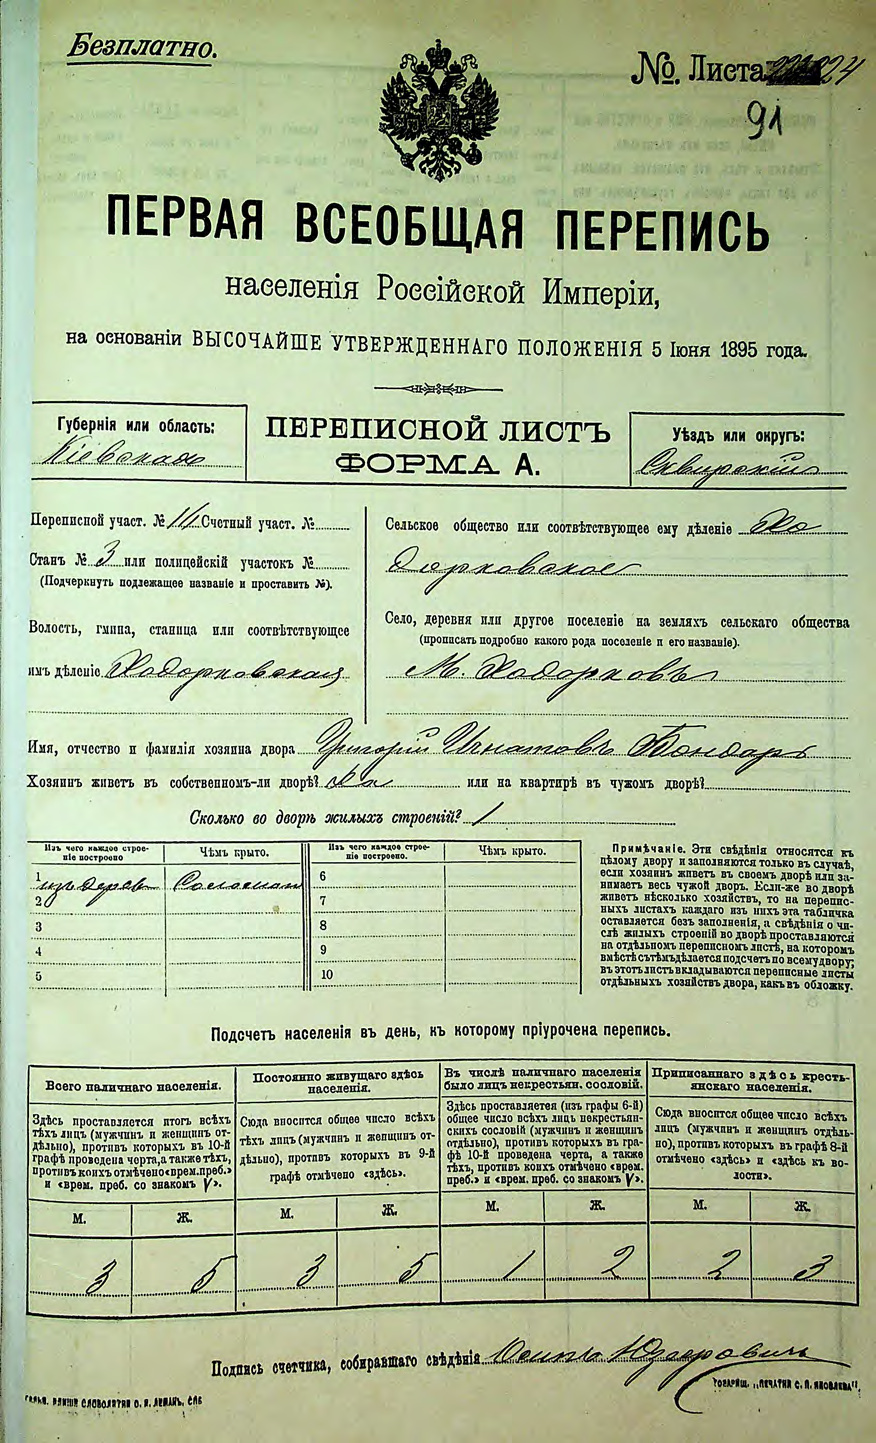 Безплатно.
№. Листа 24
91
ПЕРВАЯ ВСЕОБЩАЯ ПЕРЕПИСЬ
населенія Россійской Имперіи,
на основаніи ВЫСОЧАЙШЕ УТВЕРЖДЕННАГО ПОЛОЖЕНІЯ 5 Іюня 1895 года.
Губернія или область:
Кіевская
ПЕРЕПИСНОЙ ЛИСТЪ
ФОРМА А.
Уѣздъ или округъ:
Сквирскій
Переписной участ. № III Счетный участ. №
Станъ № 3 или полицейскій участокъ №
(Подчеркнуть подлежащее названіе и проставить №).
Волость, гмина, станица или соотвѣтствующее
имъ дѣленіе Ходорковская
Сельское общество или соотвѣтствующее ему дѣленіе Хо
дорковское
Село, деревня или другое поселеніе на земляхъ сельскаго общества
(прописать подробно какого рода поселеніе и его названіе).
М. Ходорковъ
Имя, отчество и фамилія хозяина двора Григорій Игнатовъ Бондарь
Хозяинъ живетъ въ собственномъ-ли дворѣ? Да или на квартирѣ въ чужомъ дворѣ?
Сколько во дворѣ жилыхъ строеній? 1
Изъ чего каждое строе-
ніе построено
Чѣмъ крыто.
Изъ чего каждое строе-
ніе построено.
Чѣмъ крыто.
1 изъ дерев Соломою 6
2 7
3 8
4 9
5 10
Примѣчаніе. Эти свѣдѣнія относятся къ
цѣлому двору и заполняются только въ случаѣ,
если хозяинъ живетъ въ своемъ дворѣ или за-
нимаетъ весь чужой дворъ. Если-же во дворѣ
живетъ нѣсколько хозяйствъ, то на перепис-
ныхъ листахъ каждаго изъ нихъ эта табличка
оставляется безъ заполненія, а свѣдѣнія о чи-
слѣ жилыхъ строеній во дворѣ проставляются
на отдѣльномъ переписномъ листѣ, на которомъ
вмѣстѣ съ тѣмъ дѣлается подсчетъ по всему двору;
въ этотъ листъ вкладываются переписные листы
отдѣльныхъ хозяйствъ двора, какъ въ обложку.
Подсчетъ населенія въ день, къ которому пріурочена перепись.
Всего наличнаго населенія.
Постоянно живущаго здѣсь
населенія.
Въ числѣ наличнаго населенія
было лицъ некрестьян. сословій.
Приписаннаго здѣсь кресть-
янскаго населенія.
Здѣсь проставляется итогъ всѣхъ
тѣхъ лицъ (мужчинъ и женщинъ от-
дѣльно), противъ которыхъ въ 10-й
графѣ проведена черта, а также тѣхъ,
противъ коихъ отмѣчено «врем. преб.»
и «врем. преб. со знакомъ V».
Сюда вносится общее число всѣхъ
тѣхъ лицъ (мужчинъ и женщинъ от-
дѣльно), противъ которыхъ въ 9-й
графѣ отмѣчено «здѣсь».
Здѣсь проставляется (изъ графы 6-й)
общее число всѣхъ лицъ некрестьян-
скихъ сословій (мужчинъ и женщинъ
отдѣльно), противъ которыхъ въ гра-
фѣ 10-й проведена черта, а также
тѣхъ, противъ коихъ отмѣчено «врем.
преб.» и «врем. преб. со знакомъ V».
Сюда вносится общее число всѣхъ
лицъ (мужчинъ и женщинъ отдѣль-
но), противъ которыхъ въ графѣ 8-й
отмѣчено «здѣсь» и «здѣсь къ во-
лости».
М. Ж. М. Ж. М. Ж. М. Ж.
3 5 3 5 1 2 2 3
Подпись счетчика, собиравшаго свѣдѣнія Осипъ
Товарищ. „Печатня С. П. Яковлева“.
словолитня О. И. Леманъ, СПБ